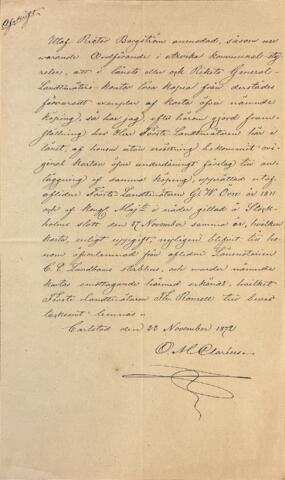 Afskrift.
Utaf Rector Bergström anmodad, såsom nu
varande Ordförande i Arvika kommunal-sty-
relse, att i Länets eller ock Rikets General-
Landtmäteri-Kontor lösa kopia från derstädes
förvaradt exemplar af karta öfver nämnde
köping, så har jag, efter härom gjord fram-
ställning hos Herr Förste Landtmätaren här i
länet, af honom utan ersättning bekommit ori-
ginal kartan öfver underdånigt förslag till an-
läggning af samma köping, upprättad utaf
aflidne Förste Landtmätaren G. W. i år 1811
och af Kongl. Maj:t i nåder gillad å Stock-
holms slott den 27 November samma år, hvilken
karta, enligt uppgift, nyligen blifvit till ho-
nom öfverlemnad från aflidne Länsmätaren
C. E. Lundhous sterbhus, och warder nämnde
kartas emottagande härmed erkändt, hvilket
Förste Landtmätaren Th. Romell till bevis
lemnas.
Carlstad den 22 November 1872
O. M. Clarius.